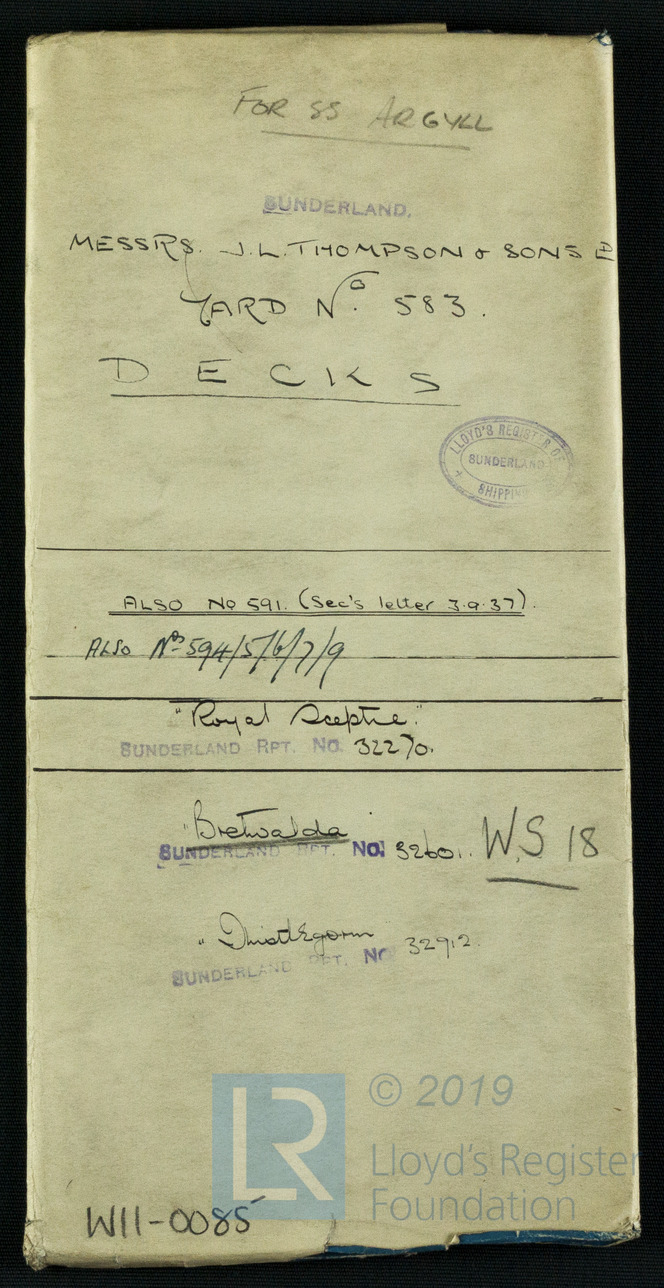 FOR SS ARGYLL
SUNDERLAND.
MESSRS. J.L. THOMPSON & SONS
YARD No. 583.
DECKS
LLOYD'S REGISTER OF
SUNDERLAND
SHIPPING
ALSO No 591. (Sec's letter 3.9.37).
ALSO Nos 594/5/6/7/9
"Royal Sceptre."
SUNDERLAND RPT. NO. 32270.
"Bretwalda
SUNDERLAND RPT. NO. 32601. W.S 18
"Thistlegorm
SUNDERLAND RPT. NO 32912.
LR
© 2019
Lloyd's Register
Foundation
W11-0085